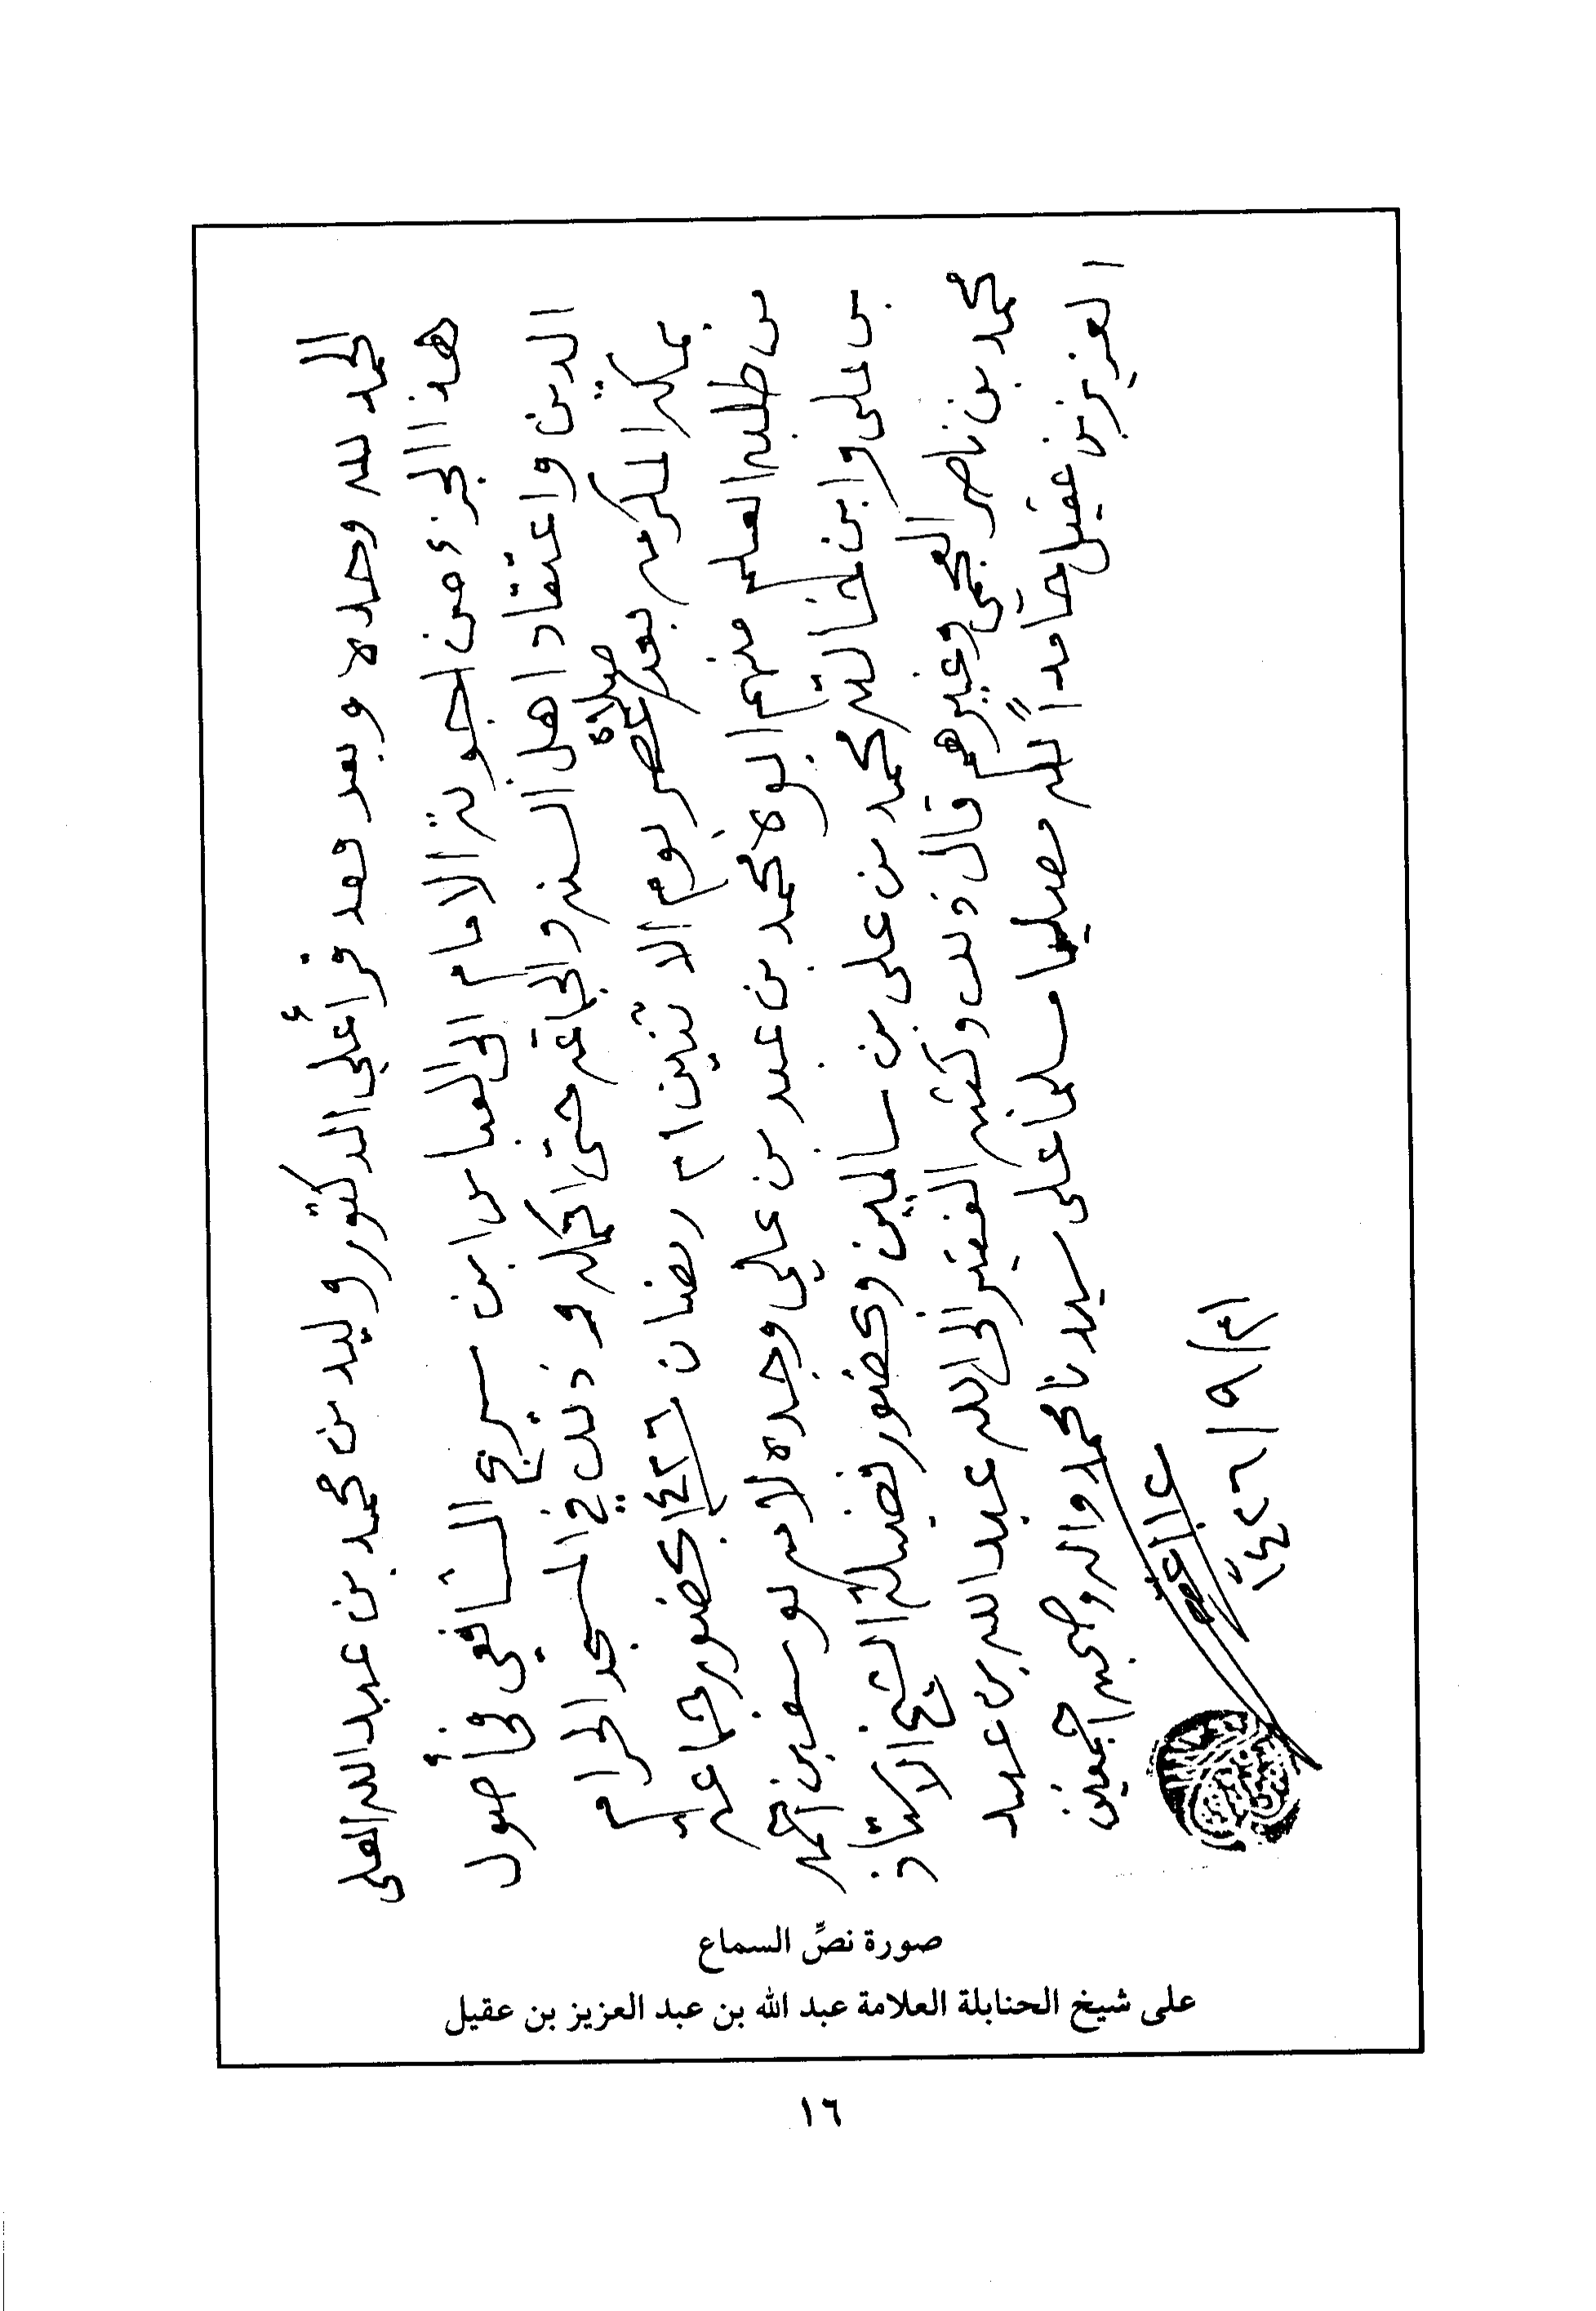 الحمد لله وحده وبعد فقد قرأ علي الدكتور وليد بن محمد بن عبد الله العلي
هذا الجزء من اجوبة الامام ابي العباس ابن سريج الشافعي في أصول
الدين واعتقاد اهل السنة والجماعة حتى اكمله وذلك في المسجد الحرام
بمكة المكرمة بعد صلاة عصر يوم الاثنين ٢١ رمضان ١٤٢٦ بحضور جماعة
من طلبة العلم منهم ابوه محمد بن عبد بن علي وجده لامه يوسف بن احمد
بن علي وابن خالته محمد بن علي بن سالمين وبحضور فضيلة الشيخ الاستاذ
محمد بن ناصر العجمي وغيرهم قال ذلك وكتبه الفقير الى الله عبد الله بن عبد
العزيز بن عقيل حامداً لله مصليا مسلما على سيدنا محمد واله وصحبه اجمعين
٢١/٩/١٤٢٦
صورة نصِّ السماع
على شيخ الحنابلة العلامة عبد الله بن عبد العزيز بن عقيل
١٦